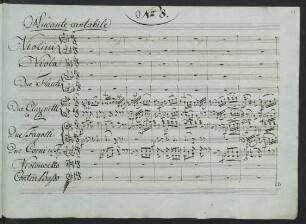 No. 8.
Andante cantabile
Violini
Viola
Due Flauti
Due Clarinetti
Due Fagotti
Due Corni in
Violoncello
Contra Basso